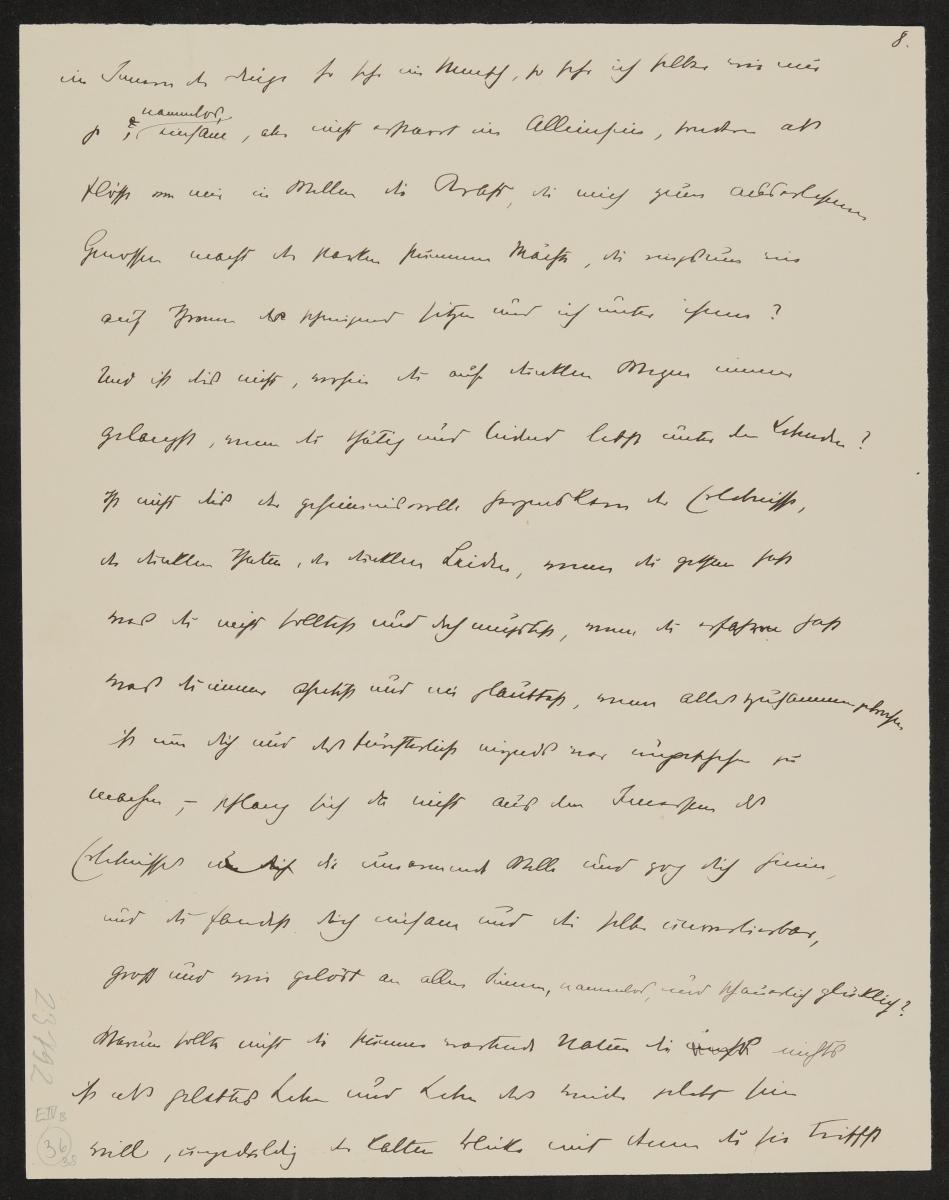 8.
im Innern der Dinge so sehr ein Mensch, so sehr ich selber wie nie
je, namenlos,
einsam, aber nicht erstarrt im Alleinsein, sondern als
flösse von mir in Wellen die Kraft, die mich zum auserlesenen
Genossen macht der starken stummen Mächte, die ringsum wie
auf Thronen schweigend sitzen und ich unter ihnen?
Und ist dies nicht, wohin du auf dunklen Wegen immer
gelangst, wenn du thätig und leidend lebst unter den Lebenden?
Ist nicht dies der geheimnisvolle Herzenskern der Erlebnisse,
der dunklen Thaten, der dunklen Leiden, wenn du gethan hast
was du nicht solltest und doch musstest, wenn du erfahren hast
was du immer ahntest und nie glaubtest, wenn alles zusammengebrochen
ist um dich und das Fürchterliche nirgends war ungeschehen zu
machen, – schlang sich da nicht aus dem Innersten des
Erlebnisses die umarmende Welle und zog dich hinein,
und du fandest dich einsam und dir selber unverlierbar,
gross und wie gelöst an allen Sinnen, namenlos, und schauerlich glücklich?
Warum sollte nicht die stumme wartende Natur die nichts
ist als gelebtes Leben und Leben das wieder gelebt sein
will, ungeduldig der kalten Blicke mit denen du sie triffst
23192
E IV B
36
38